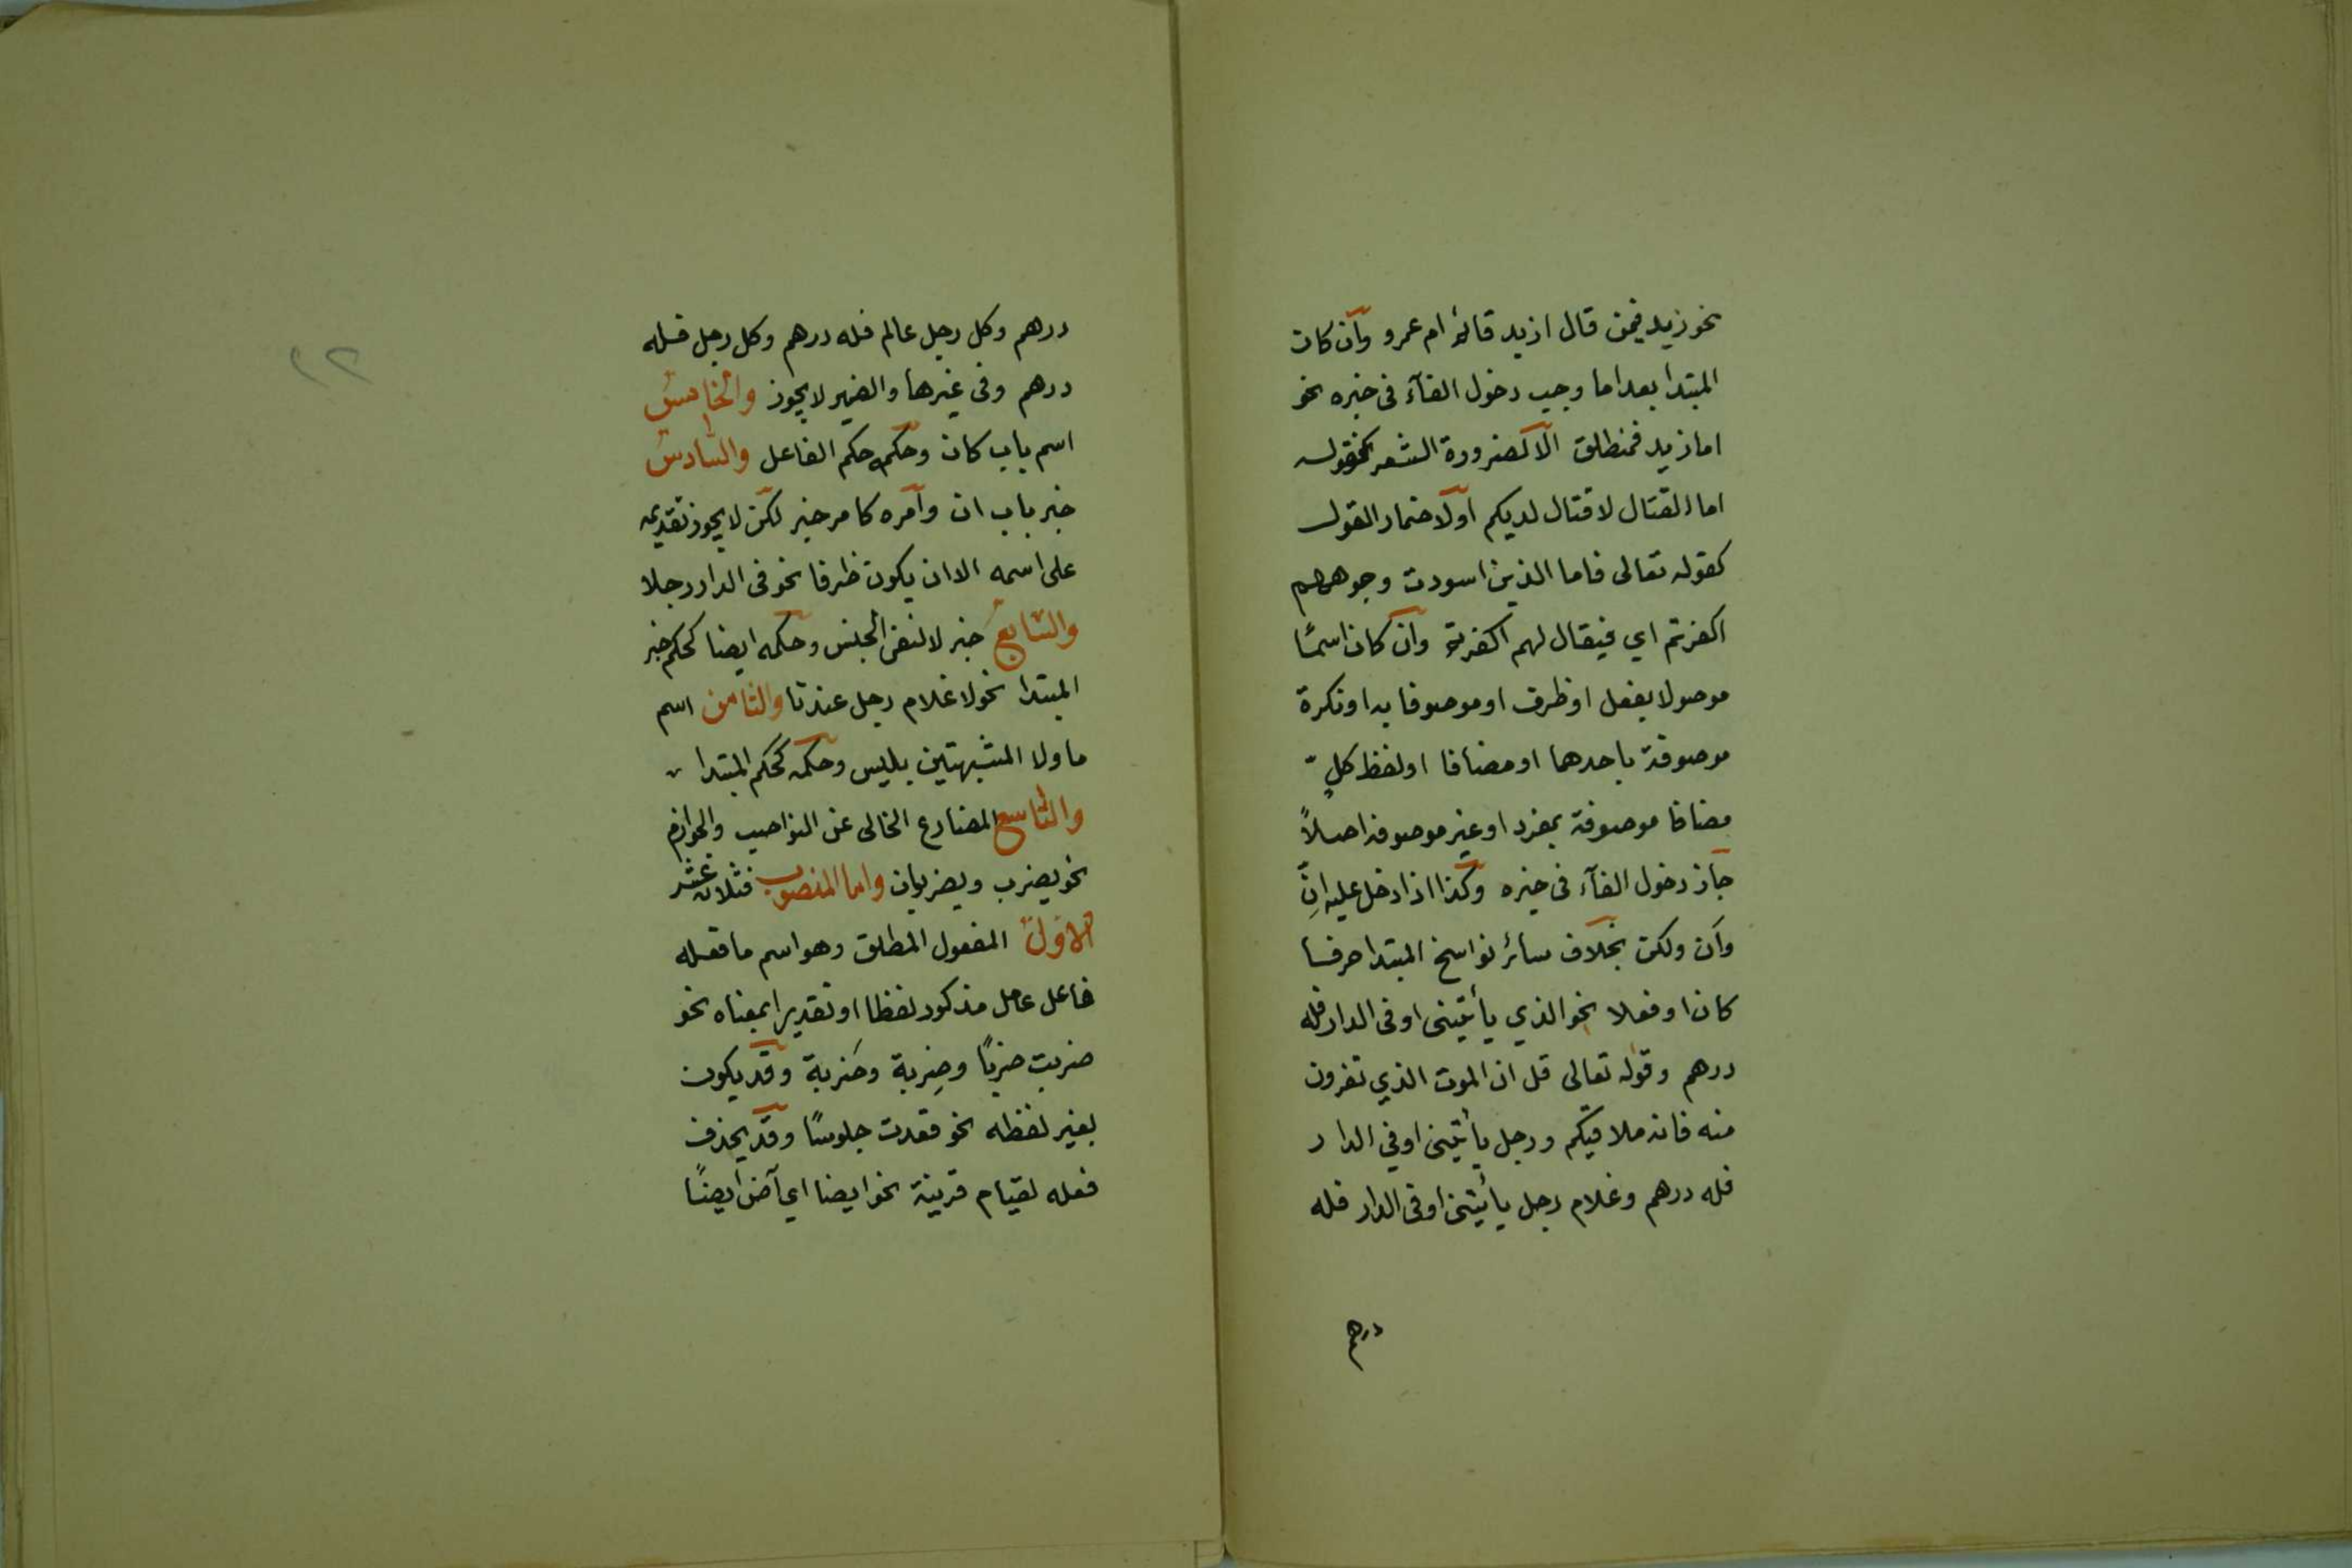 نحو زيد فيمن قال ازيد قائم ام عمرو وان كان
المبتدا بعد اما وجب دخول الفآء فى خبره نحو
اما زيد فمنطلق الا لضرورة الشعر كقوله
اما القتال لا قتال لديكم او لاضمار القول
كقوله تعالى فاما الذين اسودت وجوههم
اكفرتم اي فيقال لهم اكفرتم وان كان اسمًا
موصولا بفعل او ظرف او موصوفا به او نكرة
موصوفة باحدهما او مضافا او لفظ كلٍ
مضافا موصوفة بمفرد او غير موصوفة اصلاً
جاز دخول الفآء فى خبره وكذا اذا دخل عليه اِنّ
وأن ولكن بخلاف سائر نواسخ المبتدا حرفا
كان او فعلا نحو الذي يأتينى او فى الدار فله
درهم وقوله تعالى قل ان الموت الذي تفرون
منه فانه ملاقيكم ورجل يأتينى او في الدار
فله درهم وغلام رجل يأتينى او فى الدار فله
درهم
١٢
درهم وكل رجل عالم فله درهم وكل رجل فله
درهم وفى غيرها والضمير لا يجوز والخامس
اسم باب كان وحكمه حكم الفاعل والسادس
خبر باب ان وامره كامر خبر لكن لا يجوز تقديمه
على اسمه الا ان يكون ظرفا نحو فى الدار رجلا
والسابع خبر لا لنفى الجنس وحكمه ايضا كحكم خبر
المبتدا نحو لا غلام رجل عندنا والثامن اسم
ما ولا المشبهتين بليس وحكمه كحكم المبتدا
والتاسع المضارع الخالى عن النواصب والجوازم
نحو يضرب ويضربان واما المنصوب فثلاثة عشر
الاول المفعول المطلق وهو اسم ما فعله
فاعل عامل مذكور لفظا او تقديرا بمعناه نحو
ضربت ضربًا وضِربة وضَربة وقد يكون
بغير لفظه نحو قعدت جلوسًا وقد يحذف
فعله لقيام قرينة نحو ايضا اي آض ايضًا